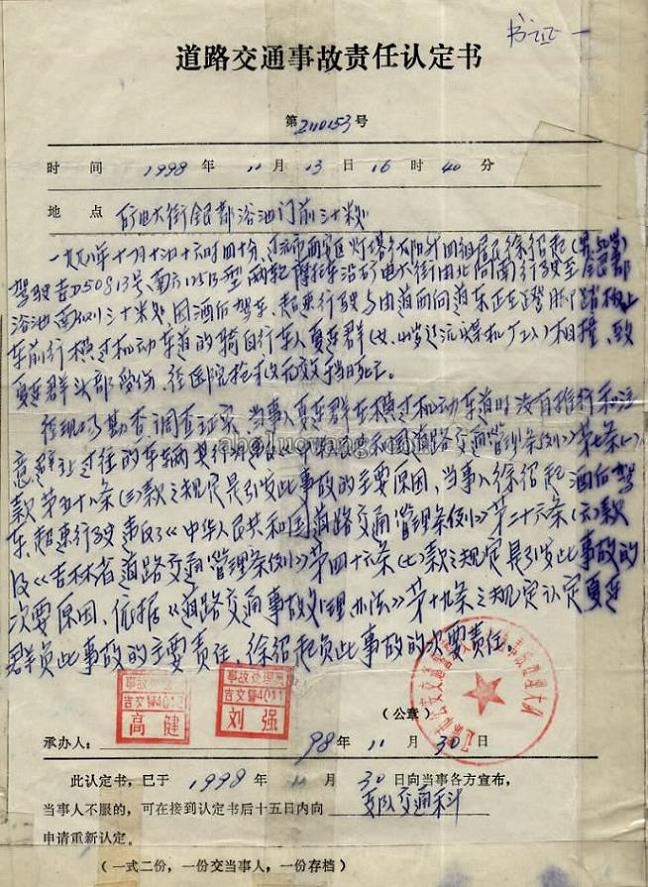 书证一
道路交通事故责任认定书
第2110153号
时间 1998年11月13日16时40分
地点 矿电大街银都浴池门前三十米处
一九九八年十一月十三日十六时四十分，辽源市西安区灯塔乡 四组居民徐绍起
驾驶吉D50813号、南方125B型两轮摩托车沿矿电大街由北向南行驶至银都
浴池南侧三十米处，因酒后驾车、超速行驶与由道西向道东
车前行横过机动车道的骑自行车人夏连群（女、 岁辽源煤机厂工人）相撞，致
夏连群头部受伤，经医院抢救无效当日死亡。
经现场勘查调查证实，当事人夏连群在横过机动车道时没有推行和注
意避让过往的车辆其行为违反《中华人民共和国道路交通管理条例》第七条（一）
款第五十八条（三）款之规定是引发此事故的主要原因，当事人徐绍起酒后驾
车、超速行驶违反了《中华人民共和国道路交通管理条例》第二十六条（六）款
及《吉林省道路交通管理条例》第四十六条（七）款之规定是引发此事故的
次要原因，依据《道路交通事故处理办法》第十九条之规定认定夏连
群负此事故的主要责任，徐绍起负此事故的次要责任。
aboluowang.com
高健
刘强
（公章）
承办人：
98年11月30日
此认定书，已于1998年11月30日向当事各方宣布，
当事人不服的，可在接到认定书后十五日内向支队交通科
申请重新认定。
（一式二份，一份交当事人，一份存档）